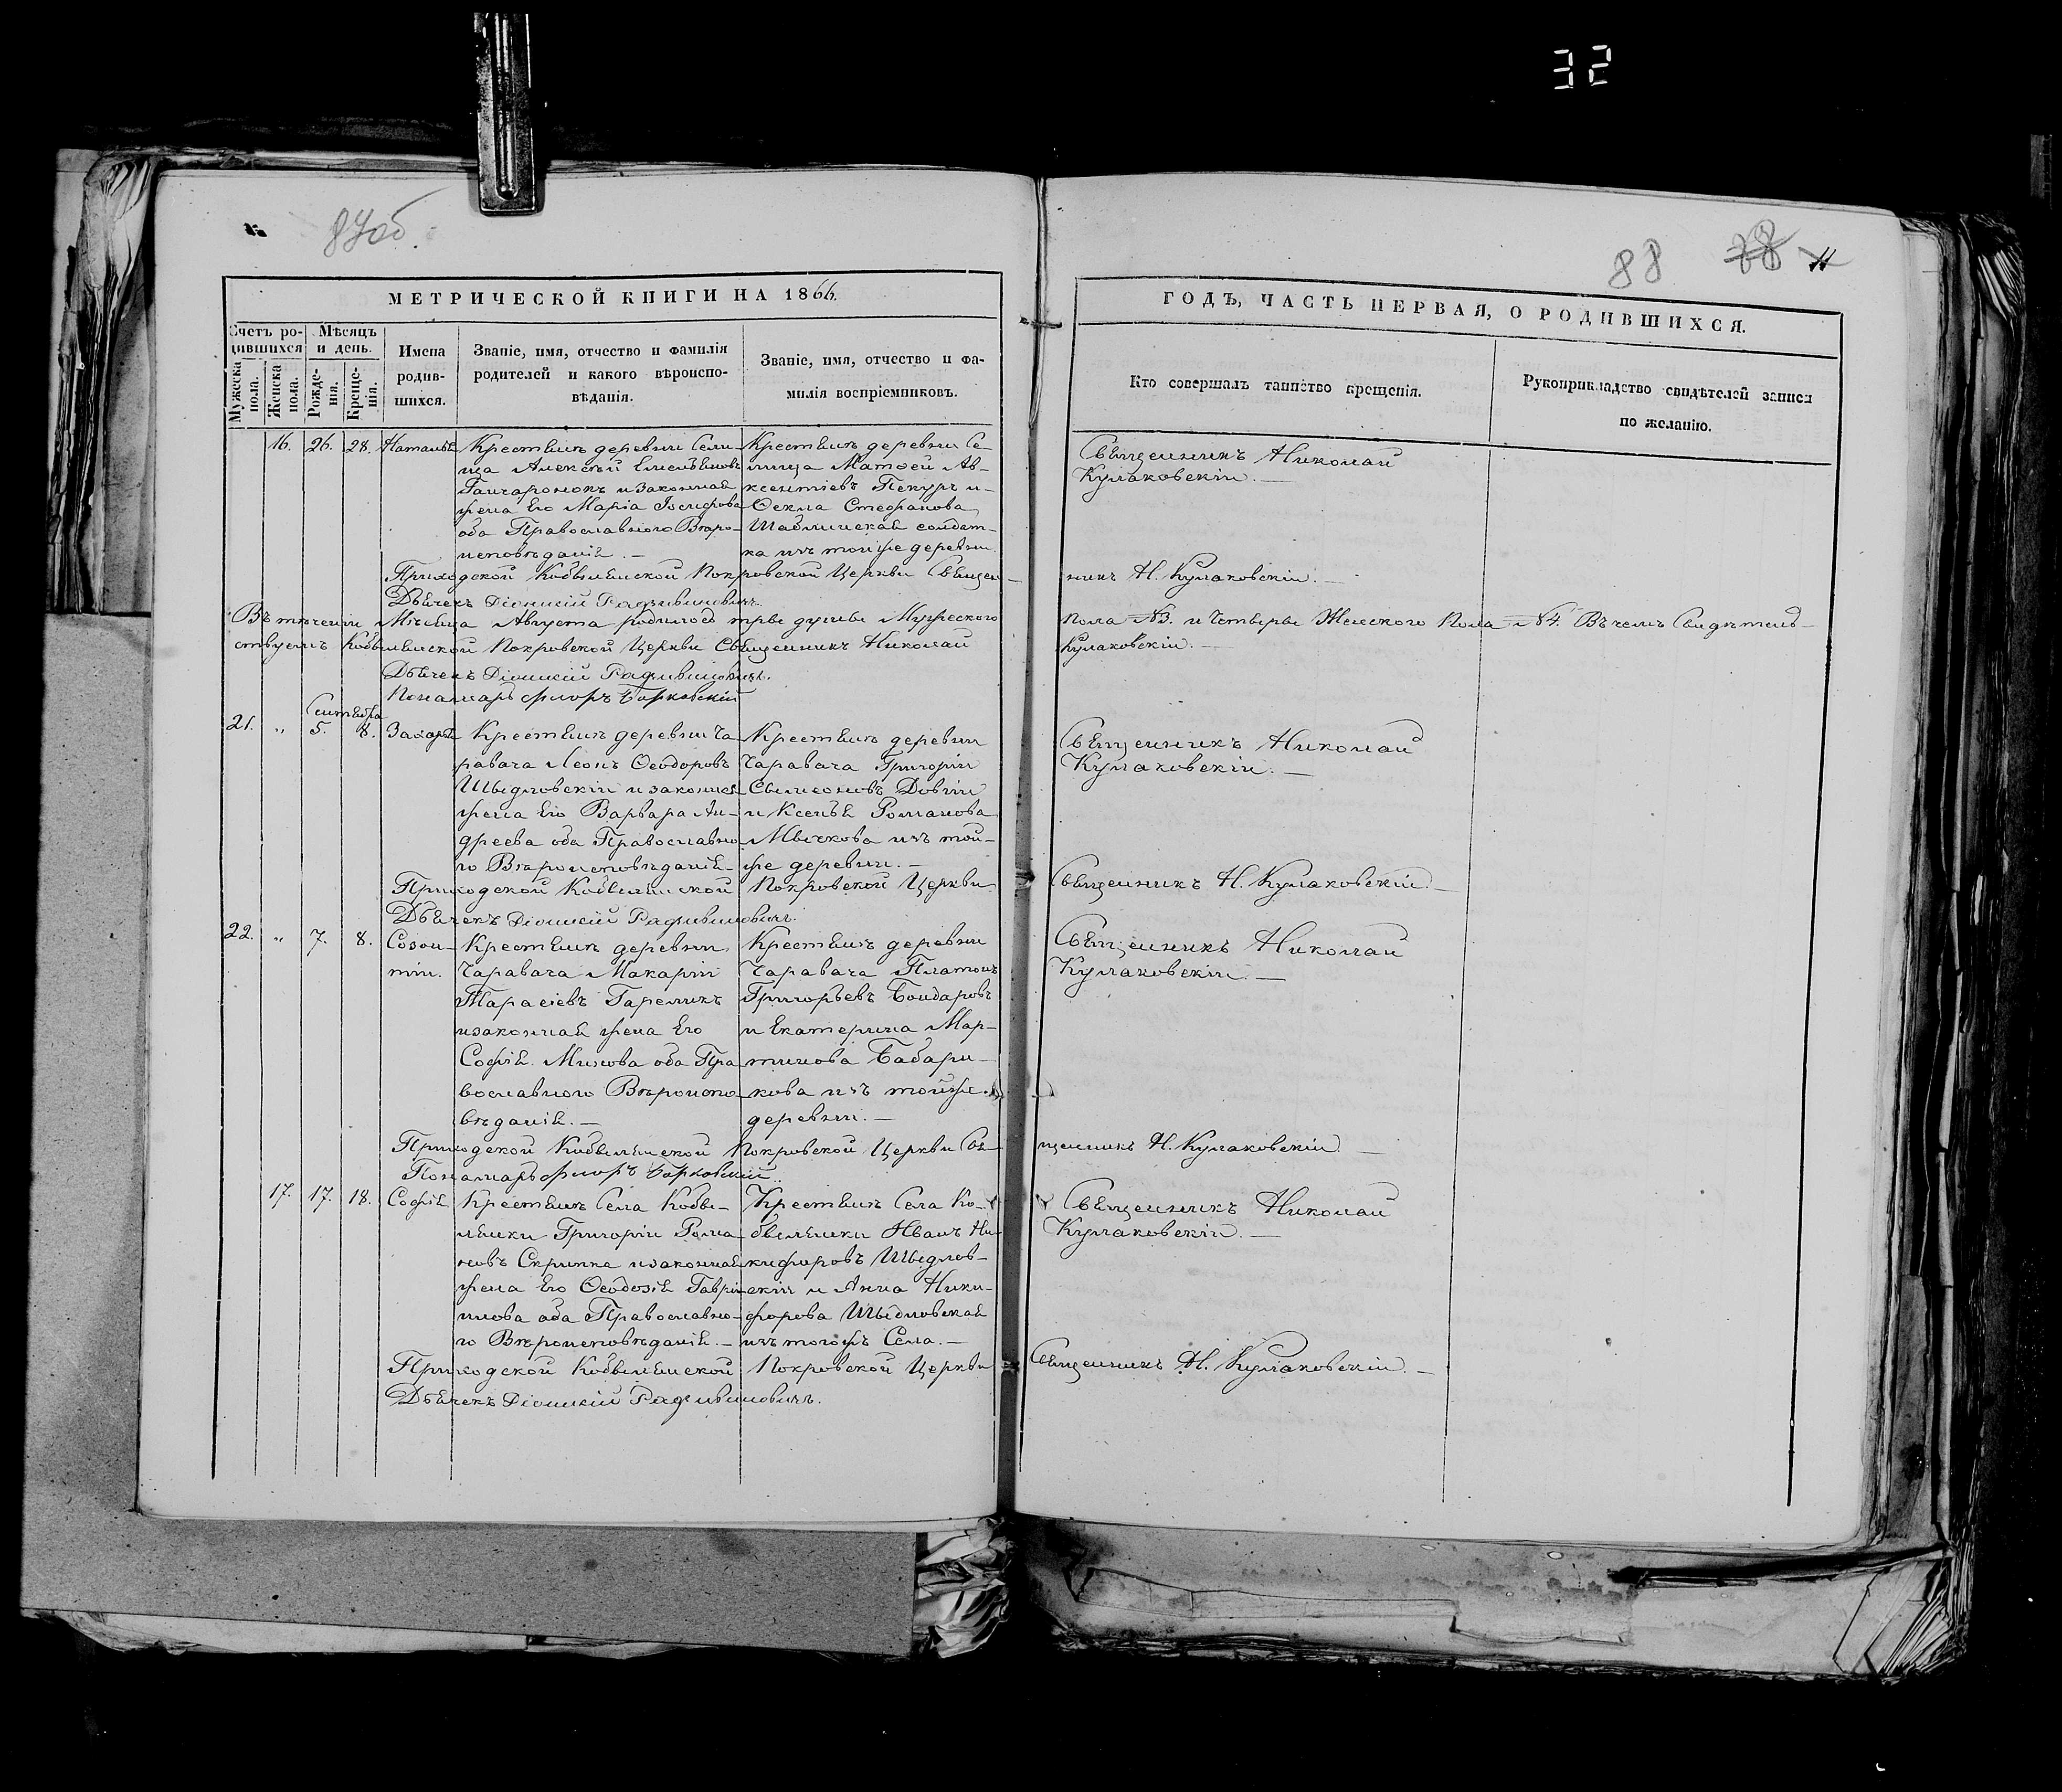 32
87об.
88 88 11
МЕТРИЧЕСКОЙ КНИГИ НА 1866.
ГОДЪ, ЧАСТЬ ПЕРВАЯ, О РОДИВШИХСЯ.
Счетъ ро-
дившихся
Мѣсяцъ
и день.
Мужеска
пола.
Женска
пола.
Рожде-
нія.
Креще-
нія.
Имена
родив-
шихся.
Званіе, имя, отчество и фамилія
родителей и какого вѣроиспо-
вѣданія.
Званіе, имя, отчество и фа-
милія воспріемниковъ.
Кто совершалъ таинство крещенія.
Рукоприкладство свидѣтелей записи
по желанію.
16. 26. 28. Наталья
Крестьянъ деревни Сели-
ца Алексѣй Емельяновъ
Ганчаронокъ и законная
жена Его Марія Іосифова
оба Православнаго Вѣро-
исповѣданія. —
Крестьянъ деревни Се-
лища Матѳей Ав-
ксентіевъ Пекуръ и
Ѳекла Стефанова
Шаблинская солдат-
ка изъ тойже деревни.
Священникъ Николай
Кулаковскій. —
Приходской Кобылянской Покровской Церкви Священ-
никъ Н. Кулаковскій. —
Дьячекъ Діонисій Радзивиновичъ.
Въ теченіи Мѣсяца Августа родилось три души Мужескаго
пола №3. и Четыри Женского Пола №4. Въ чемъ Свидѣтель-
ствуетъ Кобылянской Покровской Церкви Священникъ Николай
Кулаковскій. —
Дьячекъ Діонисій Радзивиновичъ.
Понамарь Флоръ Борковскій
Сентября
21. " 5. 8. Захарій
Крестьянъ деревни Ча-
равача Леонъ Ѳеодоровъ
Шыдловскій и законная
жена Его Варвара Ан-
дреева оба Православна-
го Вѣроисповѣданія —
Крестьянъ деревни
Чаравача Григорій
Сымоновъ Довгій
и Ксенья Романова
Мычкова изъ той-
же деревни. —
Священникъ Николай
Кулаковскій. —
Приходской Кобылянской Покровской Церкви
Священникъ Н. Кулаковскій. —
Дьячекъ Діонисій Радзивиновичъ.
22. " 7. 8. Созон-
тій.
Крестьянъ деревни
Чаравача Макарій
Тарасіевъ Гареликъ
и законная жена Его
Софія Минова оба Пра
вославнаго Вѣроиспо
вѣданія. —
Крестьянъ деревни
Чаравача Платонъ
Григорьевъ Бондаровъ
и Екатерина Мар-
тинова Бабари-
кова изъ тойже
деревни. —
Священникъ Николай
Кулаковскій. —
Приходской Кобылянской Покровской Церкви Свя-
щенникъ Н. Кулаковскій —
Понамарь Флоръ Борковскій.
17. 17. 18. Софія
Крестьянъ Села Кобы-
лянки Григорій Рома-
новъ Скрипка и законная
жена Его Ѳеодосія Гаври-
илова оба Православна-
го Вѣроисповѣданія. —
Крестьянъ Села Ко-
былянки Иванъ Ни-
кифоровъ Шыдлов-
скій и Анна Ники-
форова Шыдловская
изъ тогожъ Села. —
Священникъ Николай
Кулаковскій. —
Приходской Кобылянской Покровской Церкви
Священникъ Н. Кулаковскій. —
Дьячекъ Діонисій Радзивиновичъ.